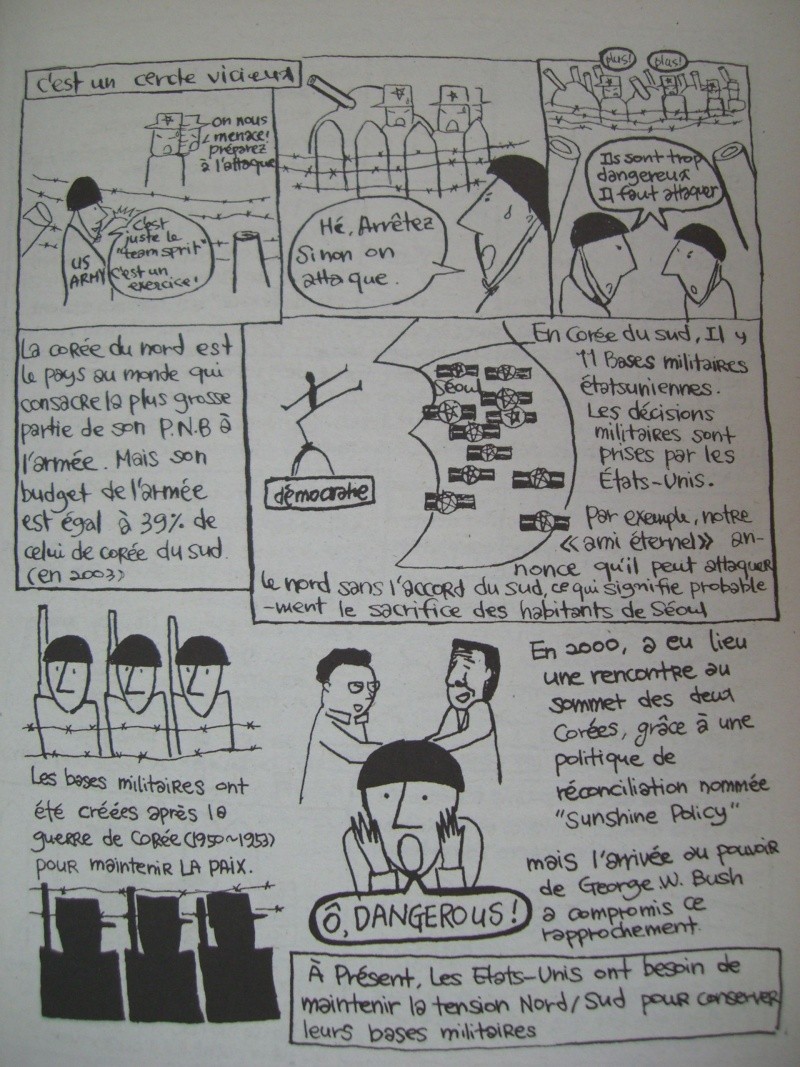 c'est un cercle vicieux
on nous
menace!
préparez
à l'attaque
US
ARMY
C'est
juste le
"team sprit"
C'est un
exercice!
Hé, Arrêtez
Sinon on
attaque.
plus!
plus!
Ils sont trop
dangereux
Il faut attaquer
La corée du nord est
le pays au monde qui
consacre la plus grosse
partie de son P.N.B à
l'armée. Mais son
budget de l'armée
est égal à 39% de
celui de corée du sud.
(en 2003)
démocratie
Séoul
En Corée du sud, Il y
11 Bases militaires
étatsuniennes.
Les décisions
militaires sont
prises par les
États-Unis.
Par exemple, notre
«ami éternel» an-
nonce qu'il peut attaquer
le nord sans l'accord du sud, ce qui signifie probable
-ment le sacrifice des habitants de Séoul
Les bases militaires ont
été créées après la
guerre de Corée (1950~1953)
pour maintenir LA PAIX.
En 2000, a eu lieu
une rencontre au
sommet des deux
Corées, grâce à une
politique de
réconciliation nommée
"Sunshine Policy"
mais l'arrivée au pouvoir
de George W. Bush
a compromis ce
rapprochement.
Ô, DANGEROUS!
À Présent, Les Etats-Unis ont besoin de
maintenir la tension Nord/Sud pour conserver
leurs bases militaires